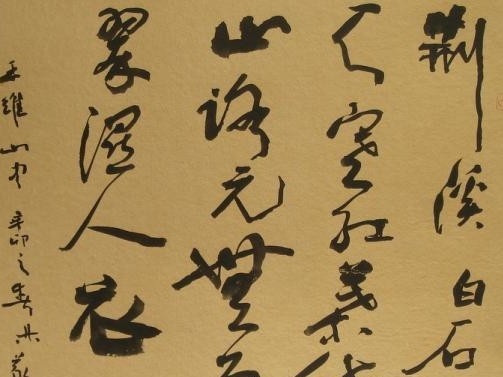 荆溪白石
天寒红葉
山路元無
翠濕人衣
王維山中 辛卯之春